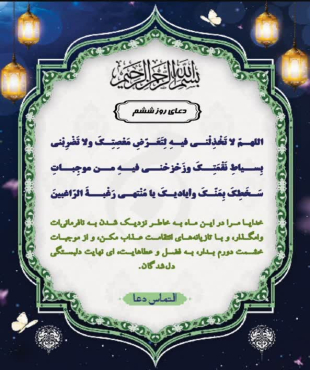 بسم الله الرحمن الرحیم
دعای روز ششم
اللهمّ لا تَخْذِلْنی فیهِ لِتَعَرّضِ مَعْصِیَتِکَ ولا تَضْرِبْنی
بِسیاطِ نَقْمَتِکَ وزَحْزِحْنی فیهِ من موجِباتِ
سَخَطِکَ بِمَنّکَ وأیادیکَ یا مُنْتَهى رَغْبةَ الرّاغبینَ
خدایا مـرا در این مـاه به خاطر نزدیک شدن به نافرمانی‌ات
وامگـذار، و بـا تازیانه‌های انتقامت عـذاب مکـن، و از موجبـات
خشمت دورم بـدار، به فضـل و عطاهایـت، ای نهایـت دلبستـگی
دلـشدگان.
التماس دعا